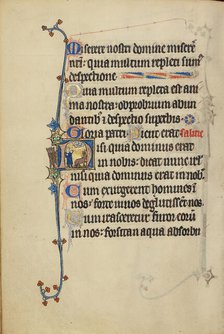 Miserere nostri domine misere
nri: quia multum repleti sum
despectione
Quia multum repleta est ani
ma nostra: obprobrium abun
dantib; et despectio superbis
Gloria patri Sicut erat
Nisi quia dominus erat
in nobis: dicat nunc isrl
nisi quia dominus erat in nob
Cum exurgerent homines i
nos: forte uiuos deglutissēt nos
Cum irasceretur furor eorū
in nos: forsitan aqua absorbu